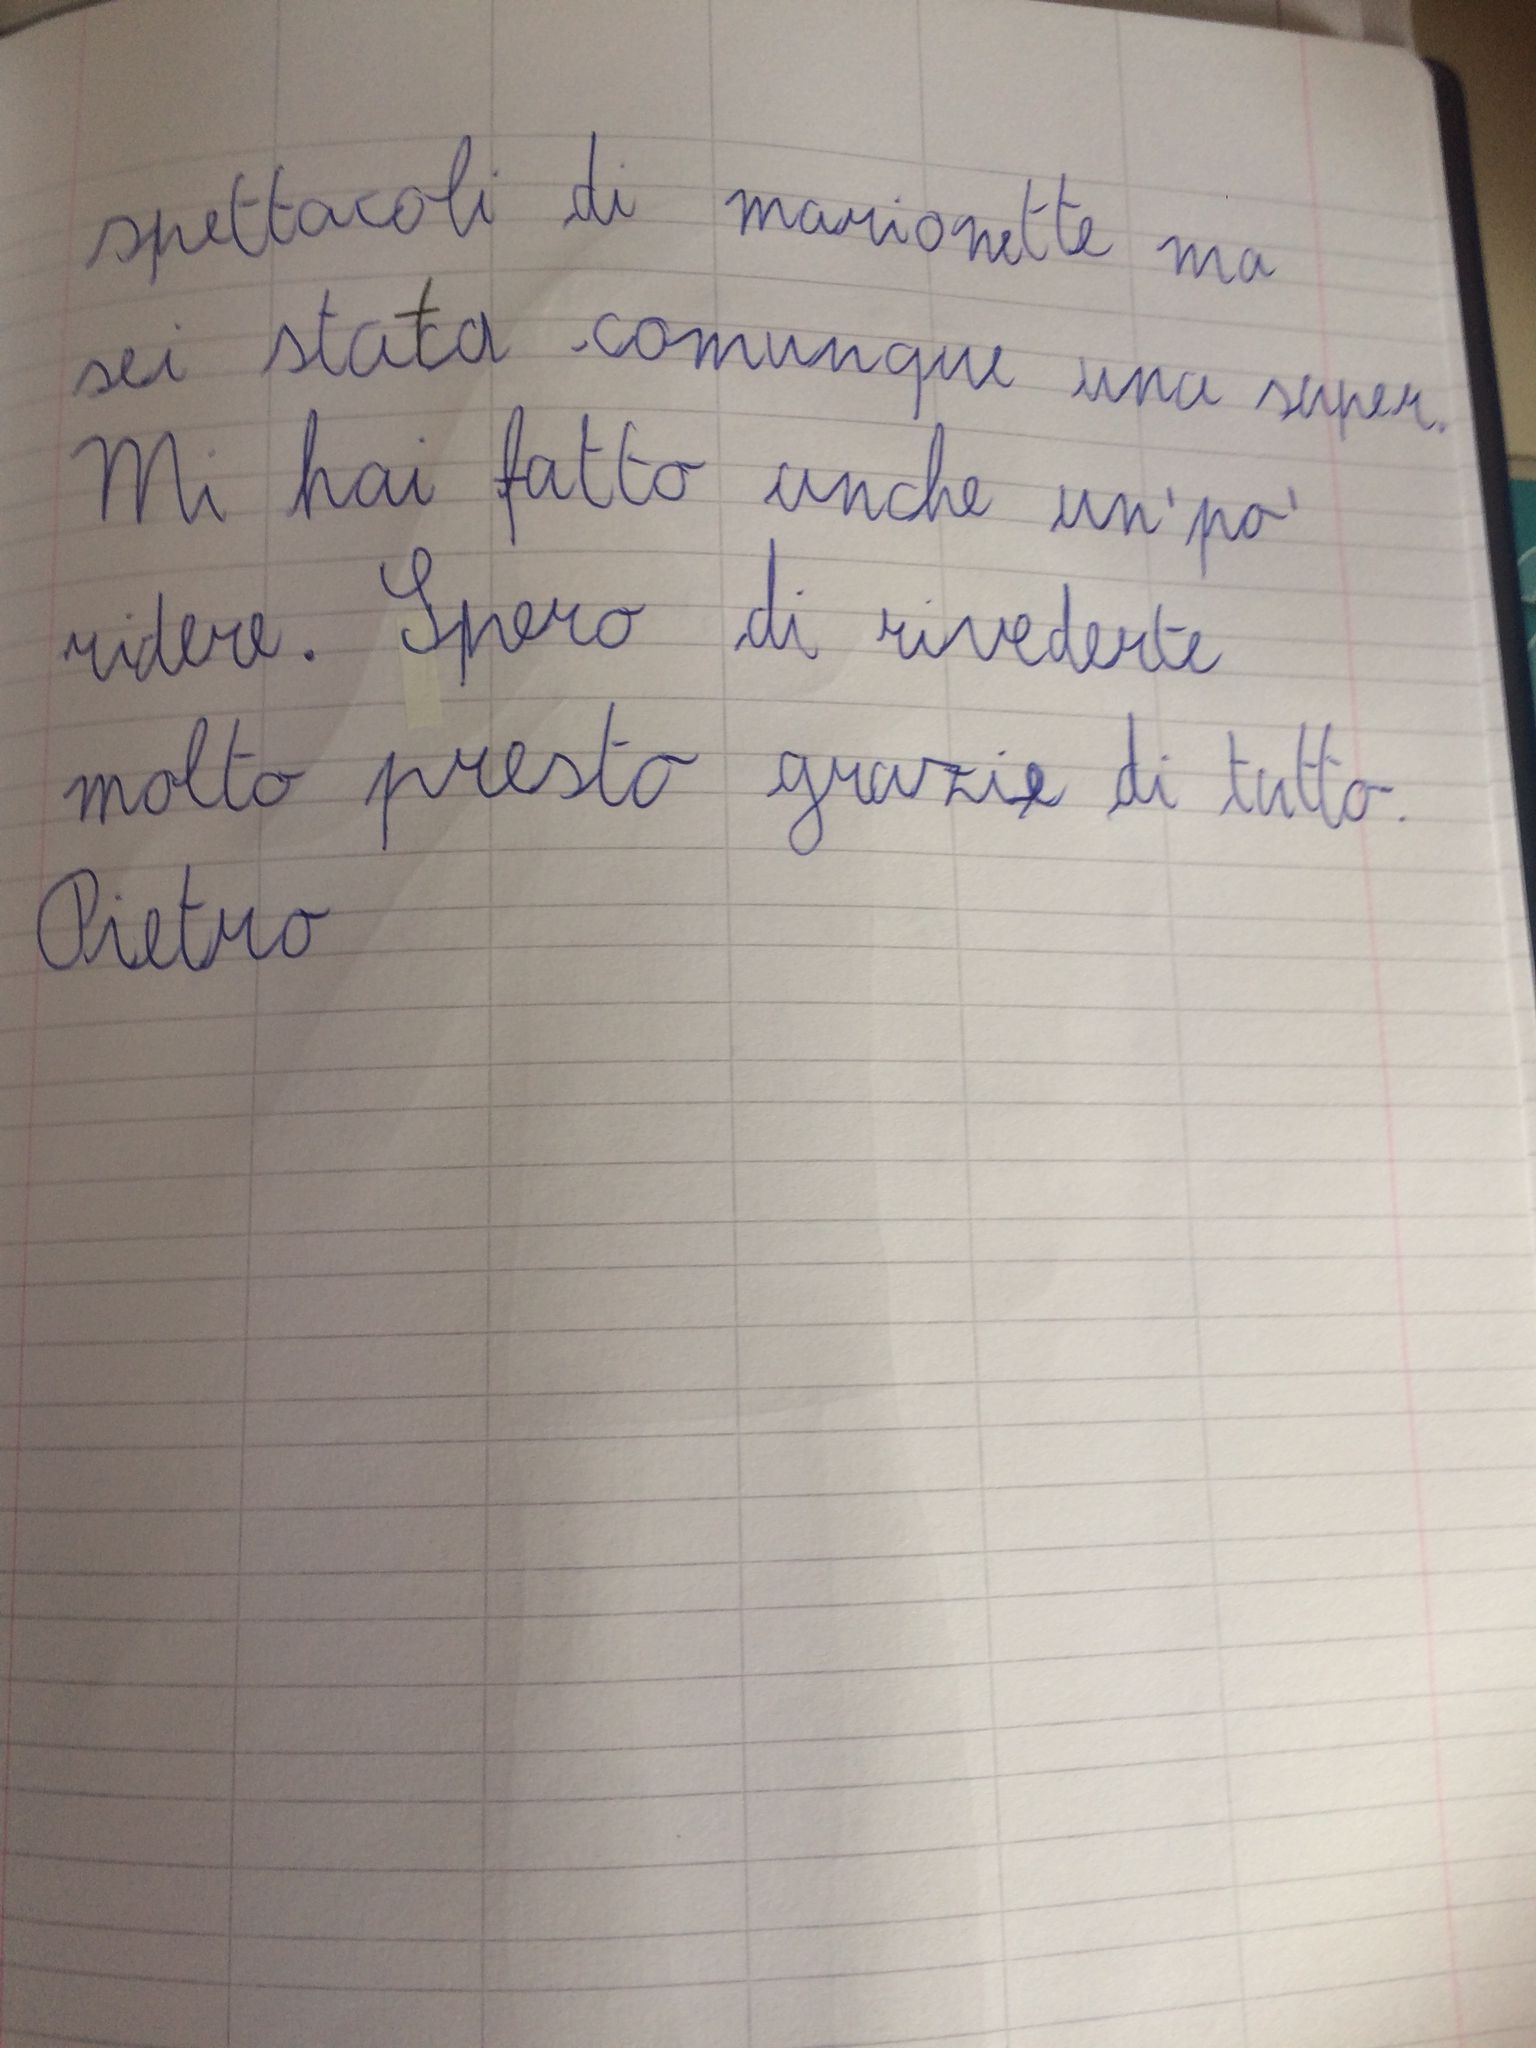 spettacoli di marionette ma
sei stata comunque una super.
Mi hai fatto anche un'po'
ridere. Spero di rivederte
molto presto grazie di tutto.
Pietro